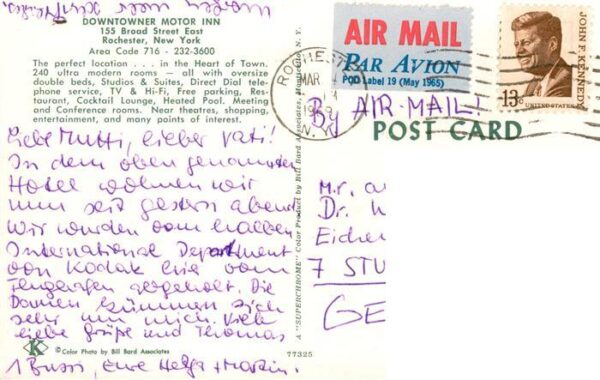 DOWNTOWNER MOTOR INN
155 Broad Street East
Rochester, New York
Area Code 716 - 232-3600
The perfect location . . . in the Heart of Town.
240 ultra modern rooms — all with oversize
double beds, Studios & Suites, Direct Dial tele-
phone service, TV & Hi-Fi, Free parking, Res-
taurant, Cocktail Lounge, Heated Pool. Meeting
and Conference rooms. Near theatres, shopping,
entertainment, and many points of interest.
Liebe Mutti, lieber Vati!
In dem oben genannten
Hotel wohnen wir
nun seit gestern abend
Wir wurden vom halben
International Department
von Kodak hie vom
Flughafen abgeholt. Die
Damen kümmern sich
sehr um mich. Viele
liebe Grüße und Thomas
1 Bussi, Eure Helga + Martin.
K
© Color Photo by Bill Bard Associates
77325
A "SUPERCHROME" Color Product by Bill Bard Associates, Monticello, N. Y.
AIR MAIL
PAR AVION
POD Label 19 (May 1965)
ROCHESTER
MAR
N.Y.
JOHN F. KENNEDY
13c
UNITED STATES
By AIR-MAIL!
POST CARD
Mr.
Dr.
Eichen
7 STU
GE